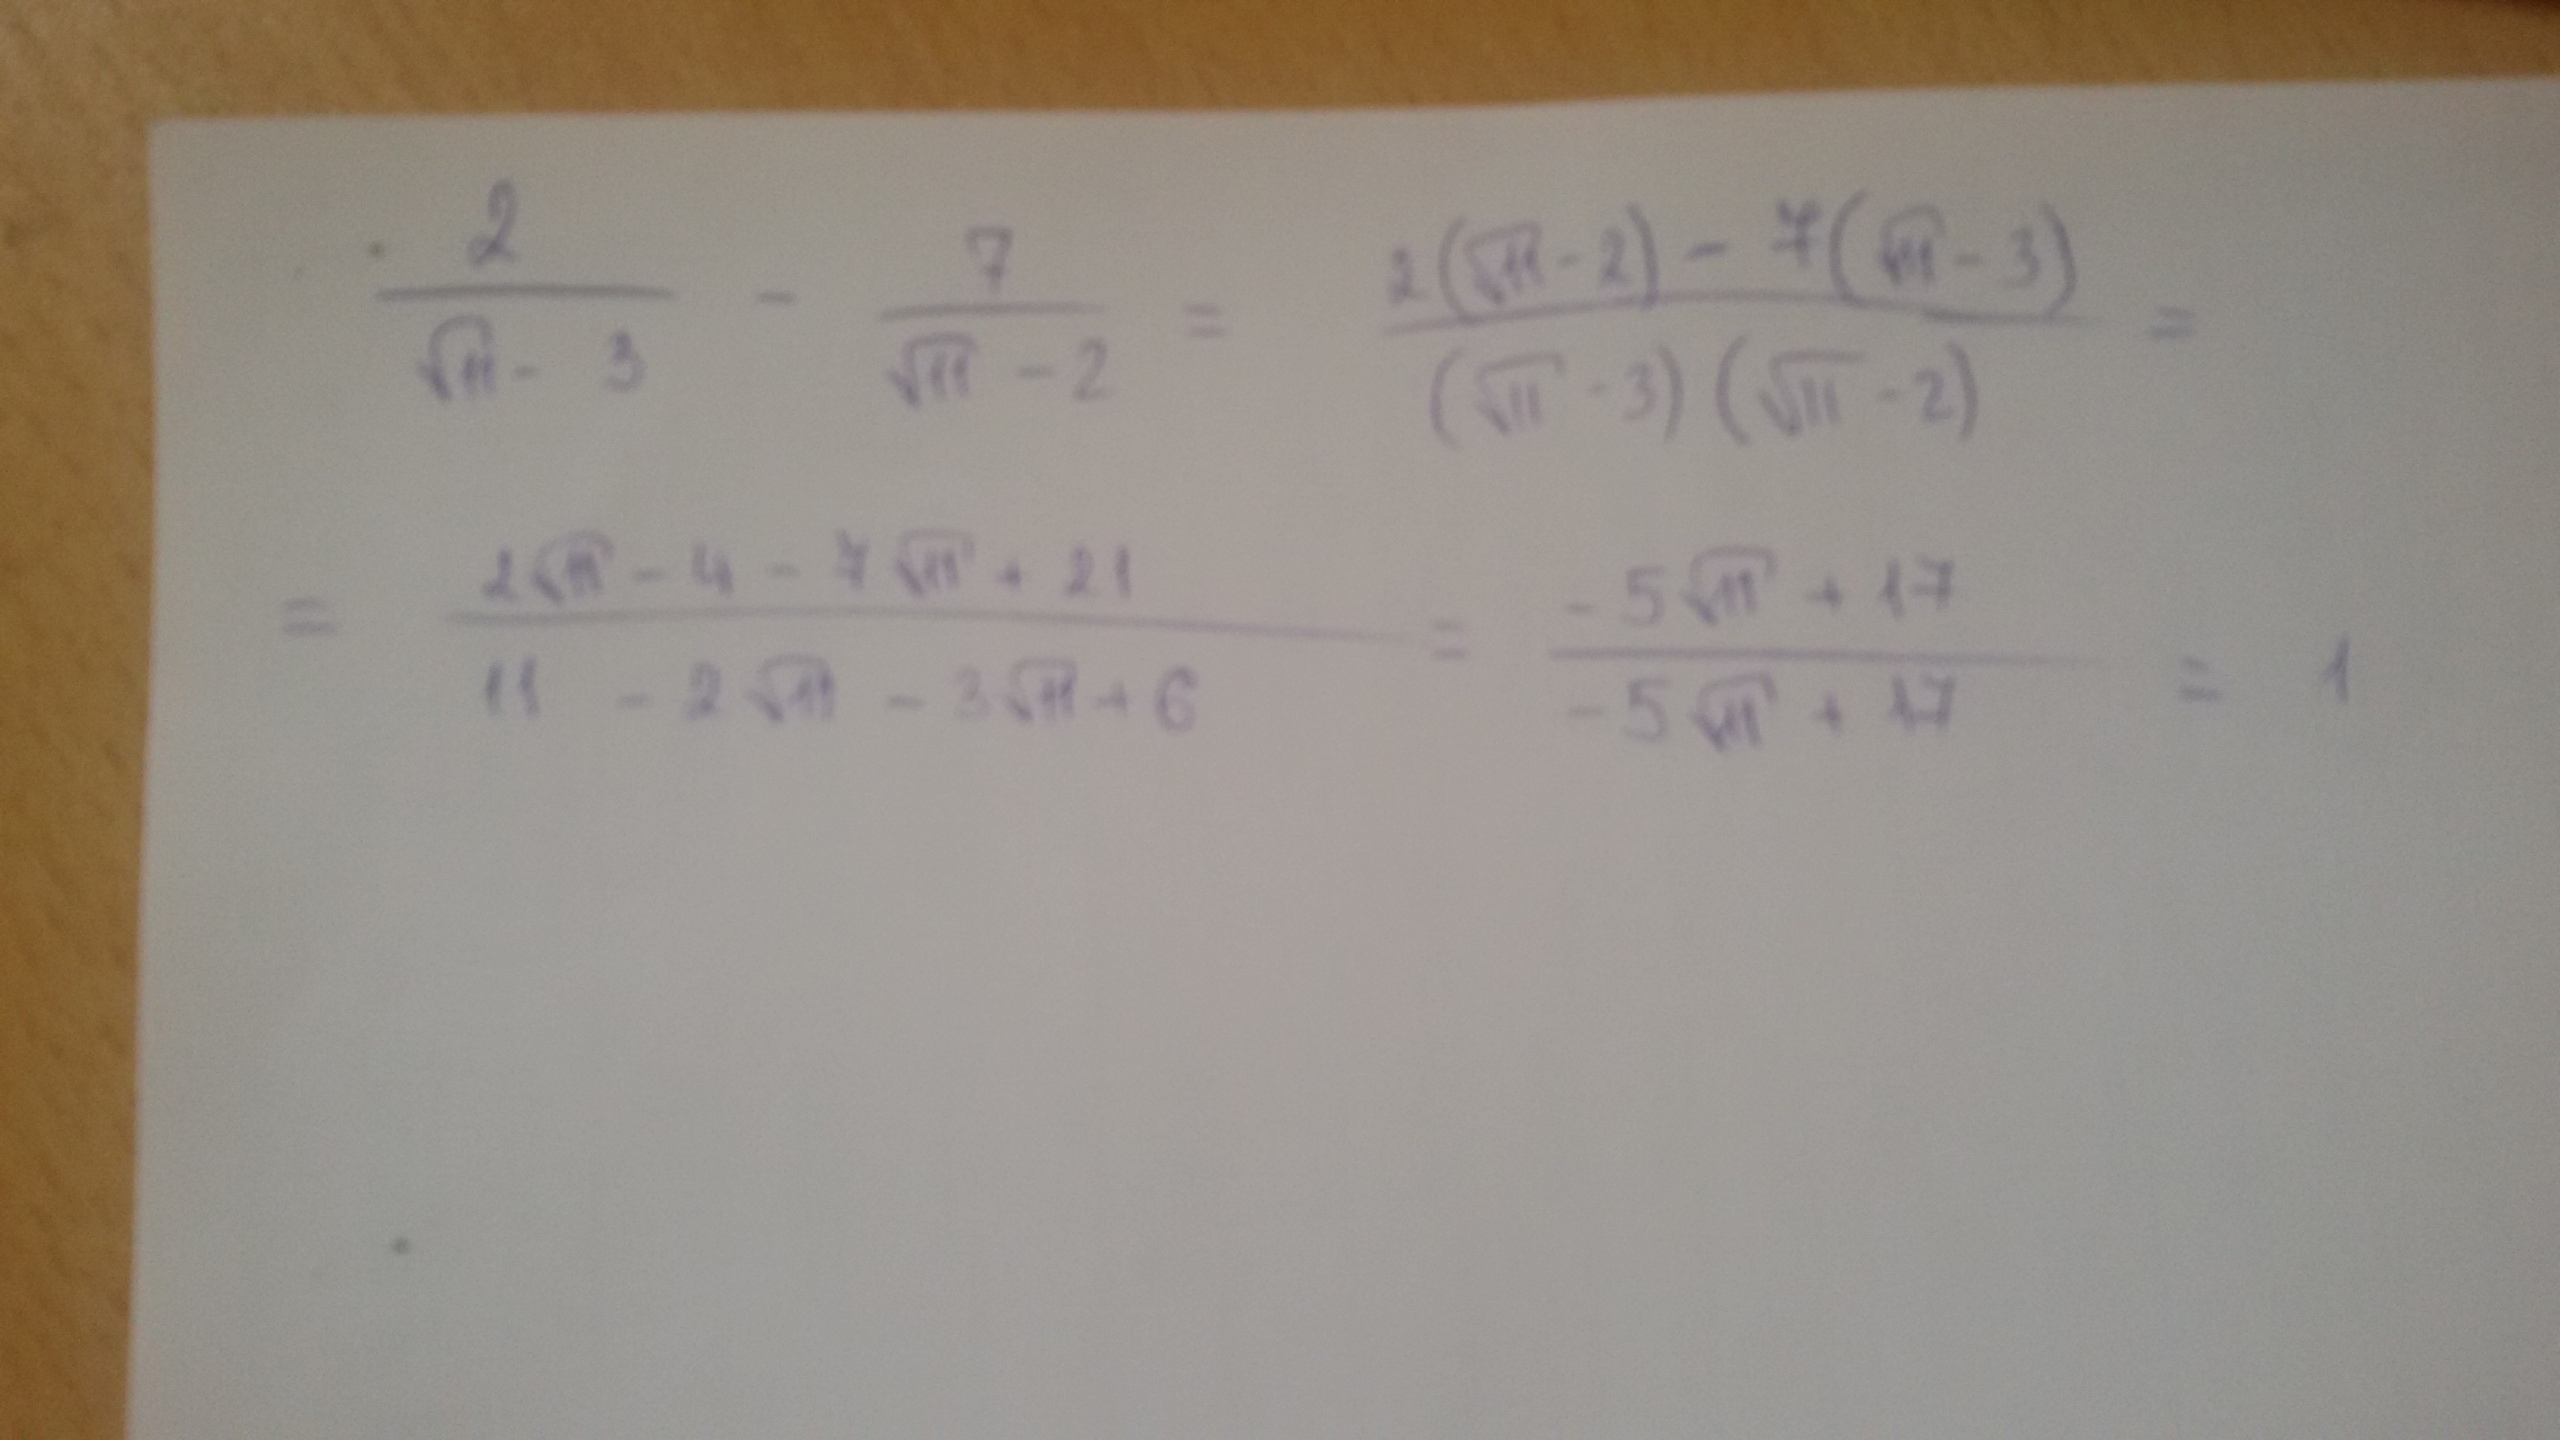 2/(√11 - 3) - 7/(√11 - 2) = (2(√11 - 2) - 7(√11 - 3))/((√11 - 3)(√11 - 2)) =
= (2√11 - 4 - 7√11 + 21)/(11 - 2√11 - 3√11 + 6) = (-5√11 + 17)/(-5√11 + 17) = 1